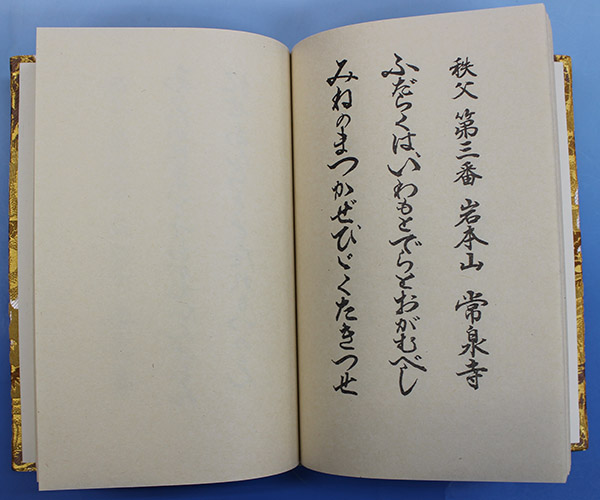 秩父 第三番 岩本山 常泉寺
ふだらくは、いわもとでらとおがむべし
みねのまつかぜひびくたきつせ